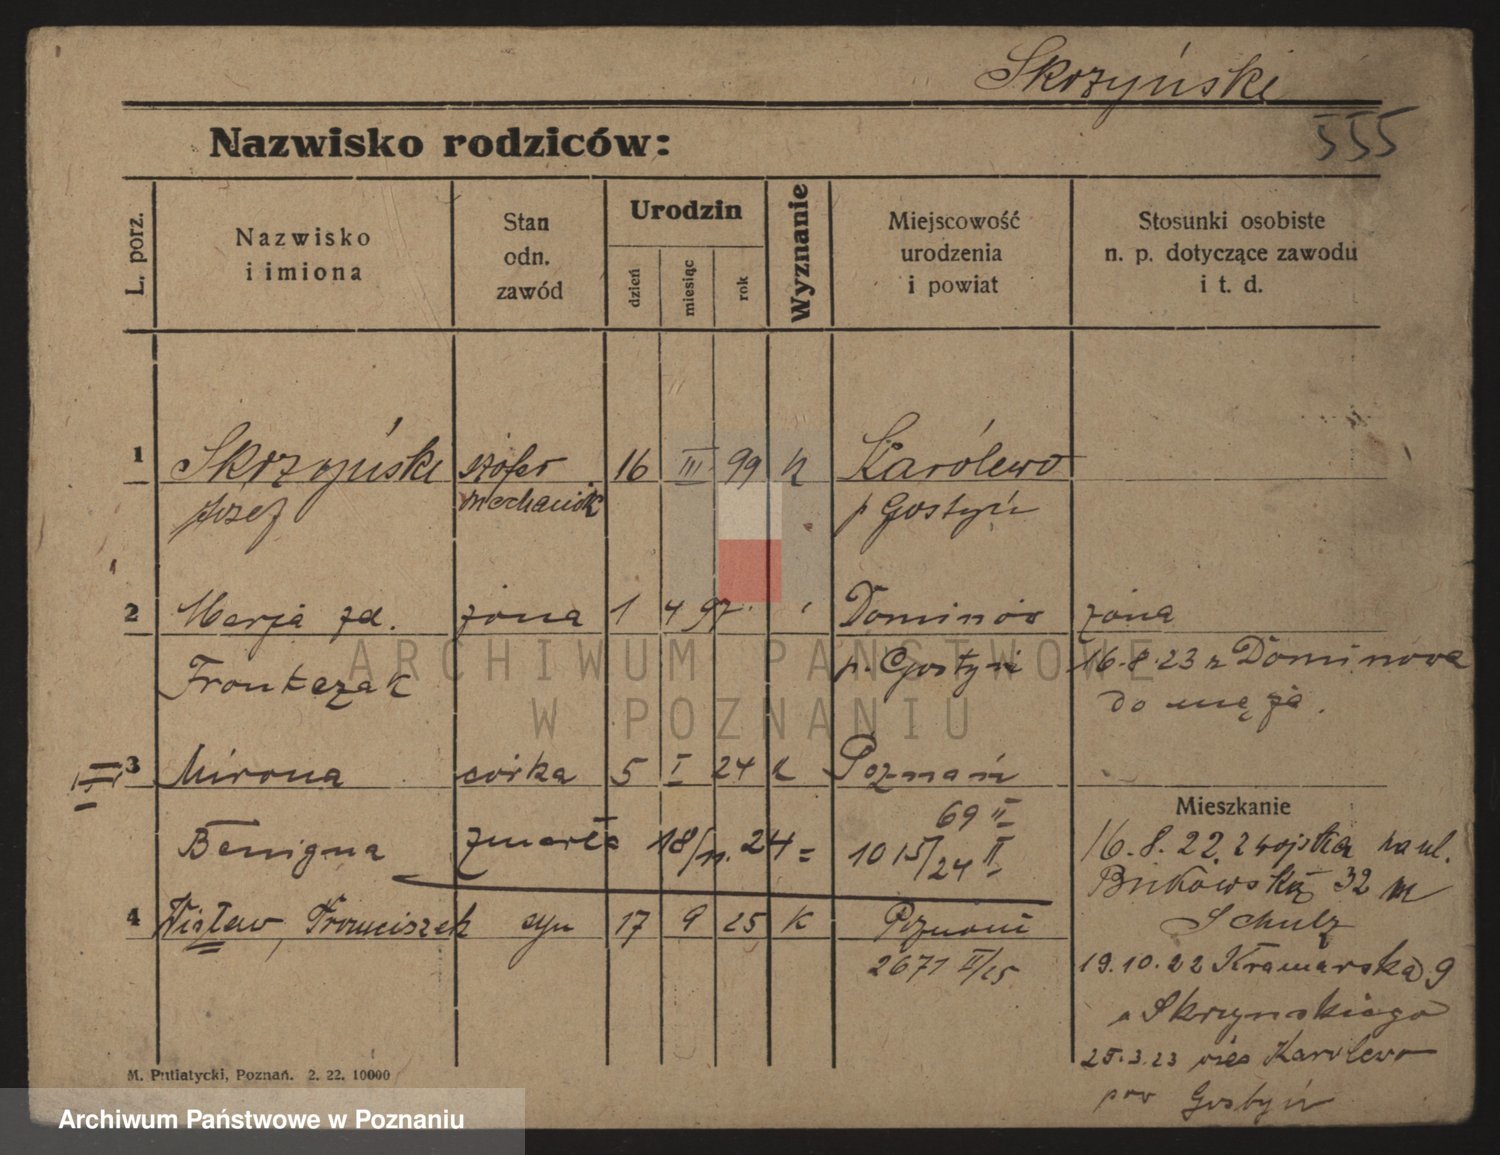 Skrzyński
555
Nazwisko rodziców:
L. porz.
Nazwisko
i imiona
Stan
odn.
zawód
Urodzin
dzień
miesiąc
rok
Wyznanie
Miejscowość
urodzenia
i powiat
Stosunki osobiste
n. p. dotyczące zawodu
i t. d.
1 Skrzyński szofer 16 III 99 k Karólewo
Józef mechanik p Gostyń
2 Marja zd. żona 1 4 97. Dominów żona
Frontczak p. Gostyń 16.8.23 z Dominowa
do męża.
ARCHIWUM PAŃSTWOWE
W POZNANIU
3 Mirona córka 5 I 24 k Poznań
69 II
Mieszkanie
Benigna zmarła 18/ 24 = 1015/24 II
16.8.22 z wojska na ul.
Bukowską 32 m
Schulz
4 Wisław, Franciszek syn 17 9 25 k Poznań
2671 II/25
19.10.22 Kramarska 9
u Skrzynskiego
25.3.23 wieś Karolewo
pow Gostyń
M. Putiatycki, Poznań. 2. 22. 10000
Archiwum Państwowe w Poznaniu